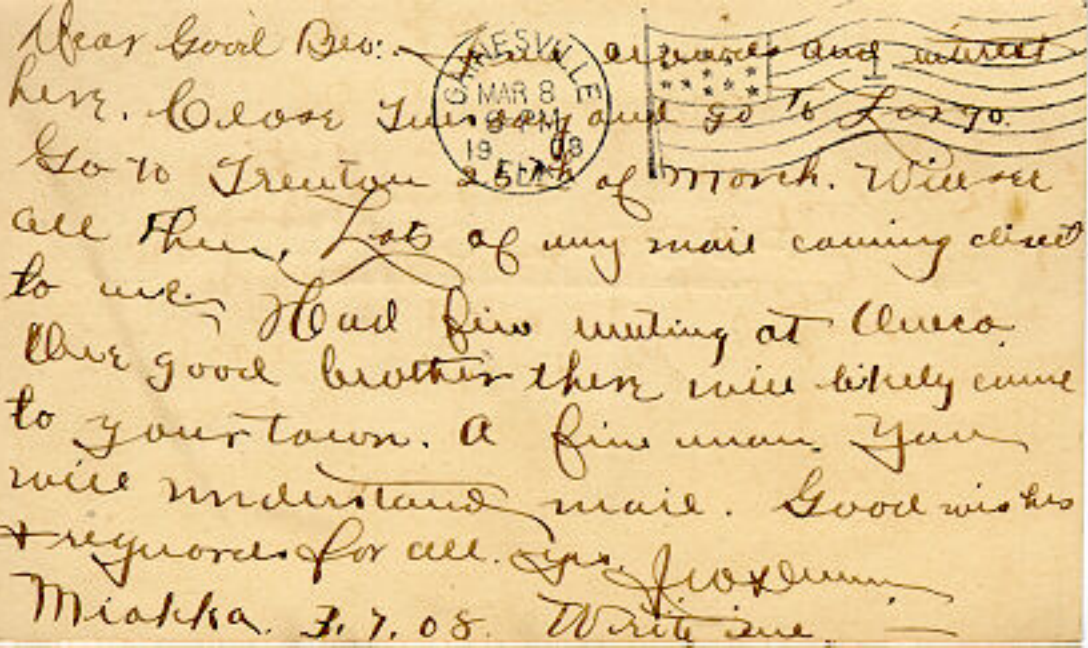 Dear Good Bro: and interest
here. Close Tuesday and go to Largo.
Go to Trenton 25th of March. Will see
all them. Lots of my mail coming direct
to me. Had fine meeting at
One good brother there will likely come
to your town. A fine man. You
will understand mail. Good wishes
+ reguards for all. Yrs.
Miakka. 3.7.08. Write me.
GAINESVILLE
MAR 8
PM
1908
FLA.